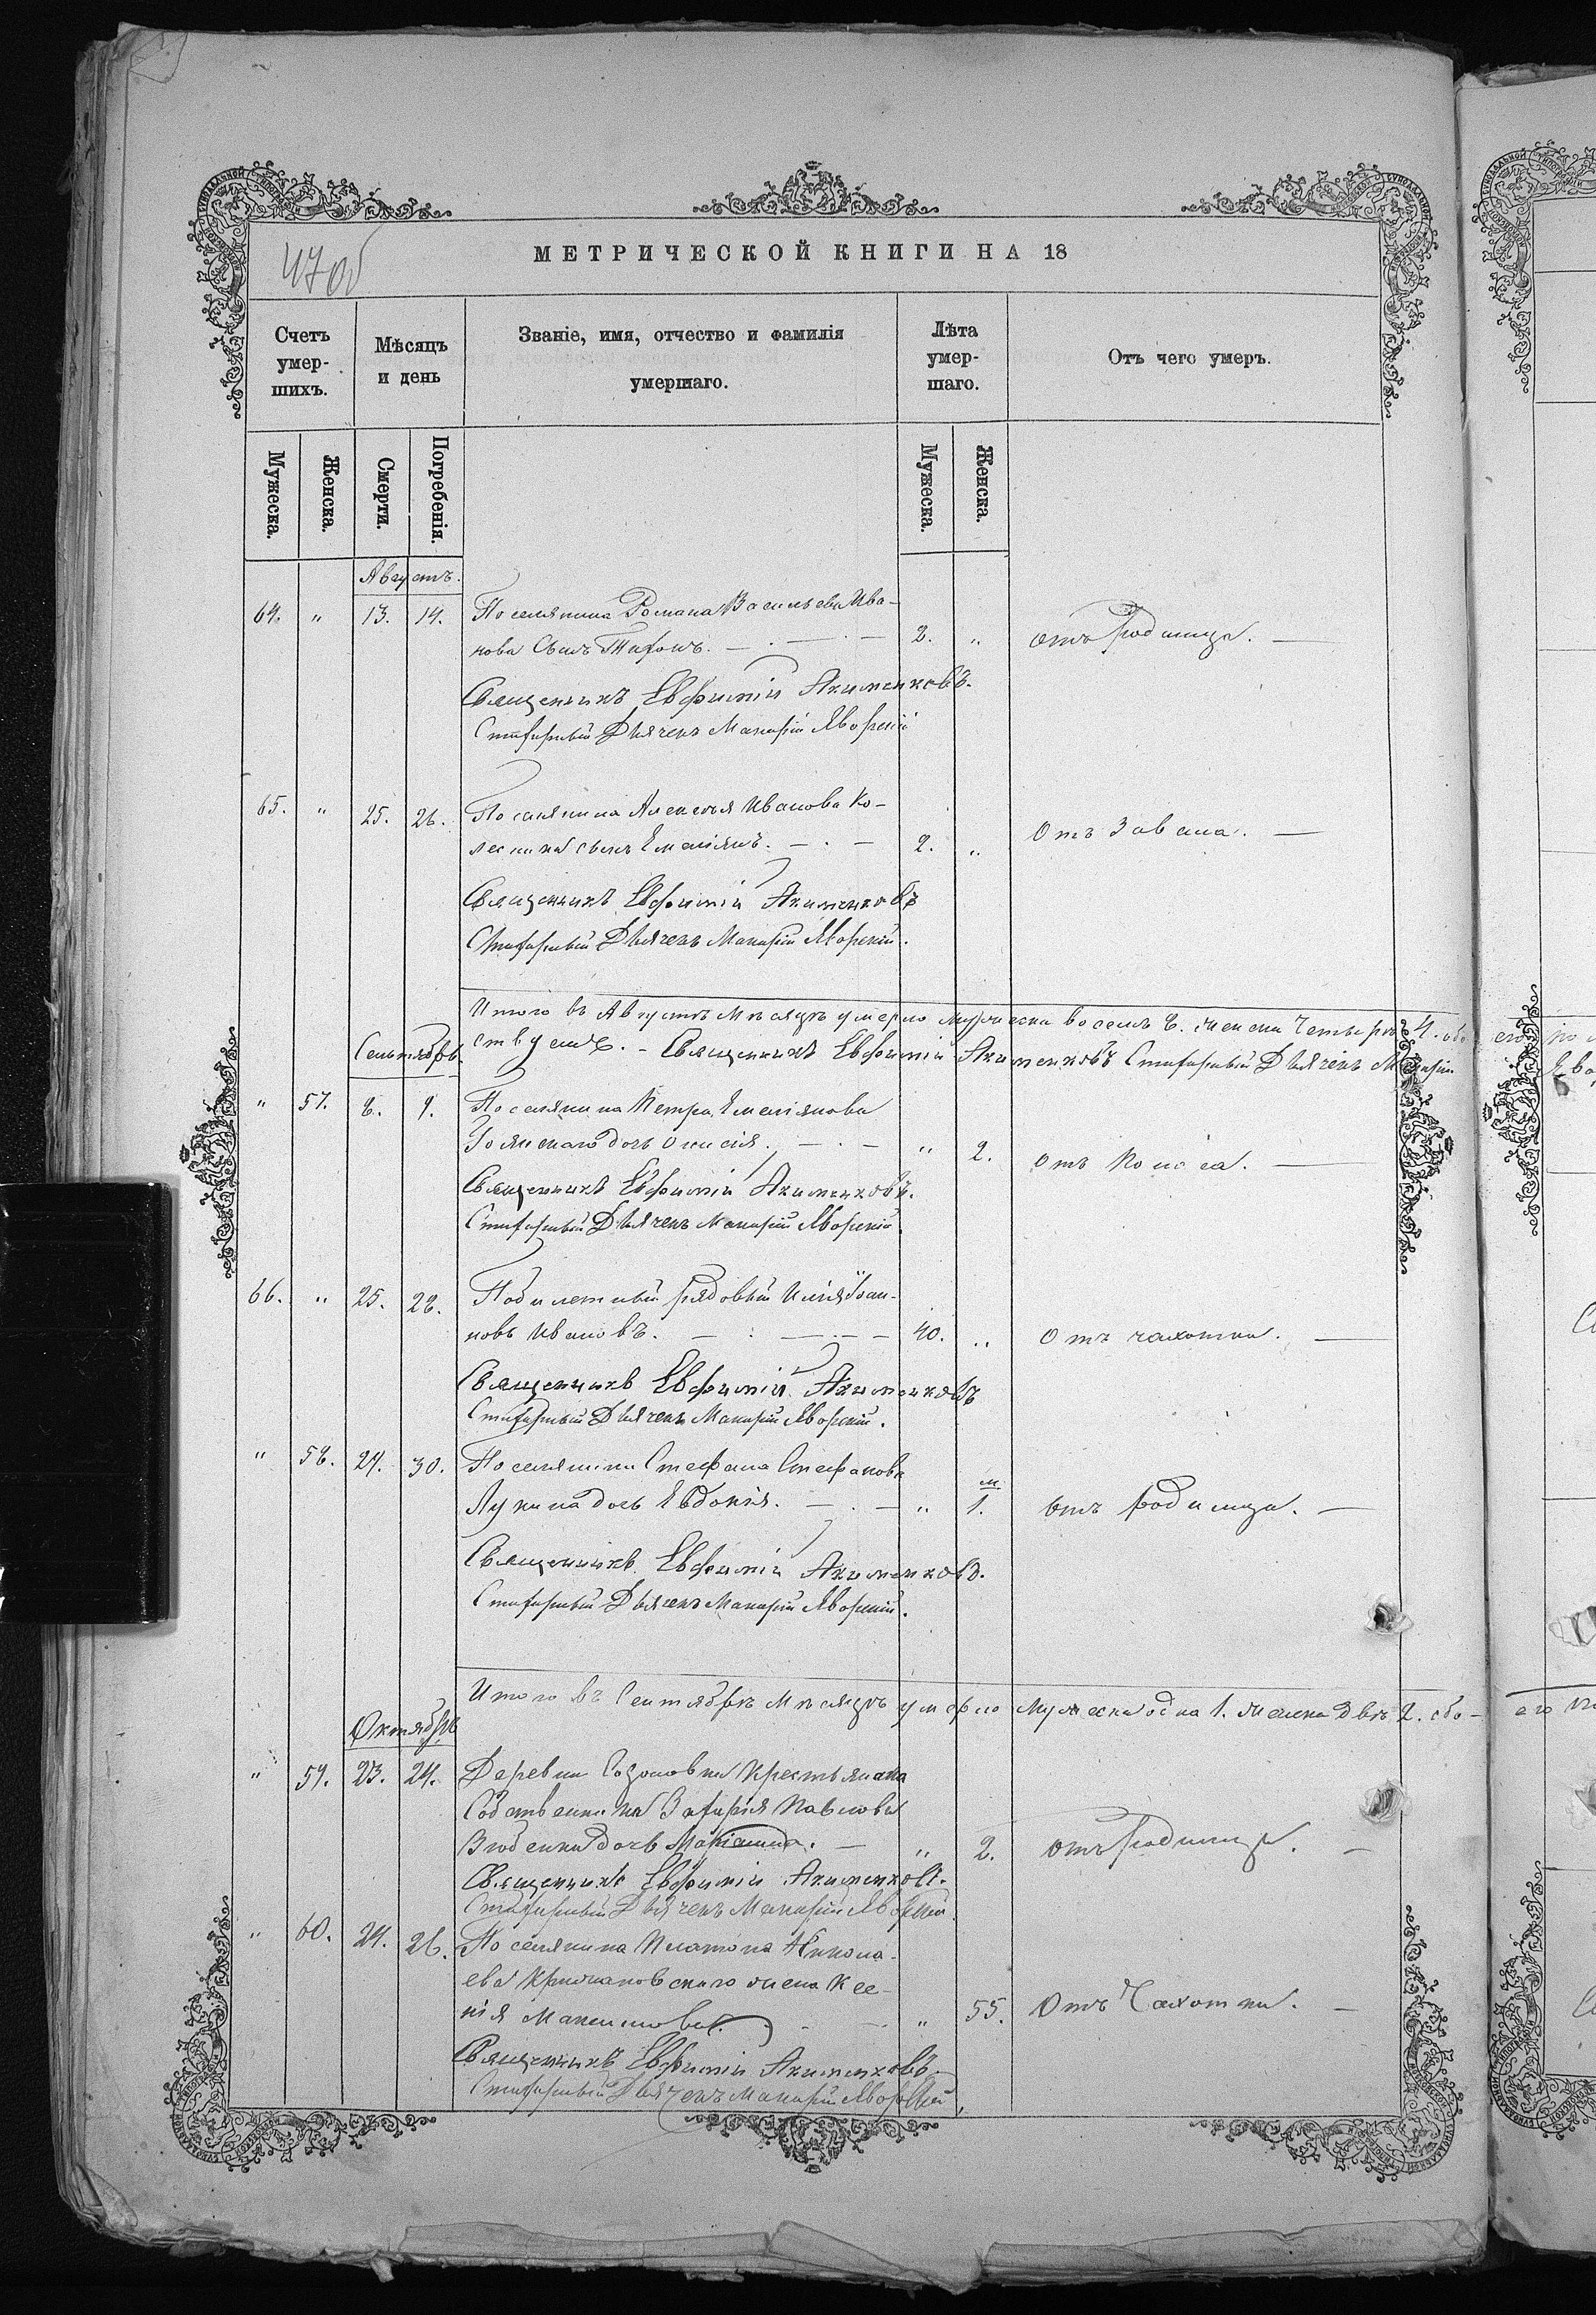 470б
МЕТРИЧЕСКОЙ КНИГИ НА 18
Счетъ умер-шихъ.
Мѣсяцъ и день
Званіе, имя, отчество и фамилія умершаго.
Лѣта умер-шаго.
Отъ чего умеръ.
Мужеска.
Женска.
Смерти.
Погребенія.
Мужеска.
Женска.
Августъ.
64. " 13. 14. Поселянина Романа Васильева Ива-
нова сынъ Тихонъ. 2. " отъ родимца.
Священникъ Евфимій Акименковъ.
Стихарный Дьячекъ Макарій Яворскій
65. " 25. 26. Поселянина Алексѣя Иванова Ко-
лесника сынъ Емеліянъ. 2. " Отъ Завала.
Священникъ Евфимій Акименковъ
Стихарный Дьячекъ Макарій Яворскій.
Итого въ Августѣ мѣсяцѣ умерло мужеска восемь 8. женска четыре 4. обо-
Сентябрь
ств 
Священникъ Евфимій Акименковъ Стихарный Дьячекъ Макарій
" 57. 8. 9. Поселянина Петра Емеліянова
дочь " 2. отъ поноса.
Священникъ Евфимій Акименковъ.
Стихарный Дьячекъ Макарій Яворскій.
66. " 25. 28. рядовый Илія Іоан-
новъ Ивановъ. 40. " Отъ чахотки.
Священникъ Евфимій Акименковъ
Стихарный Дьячекъ Макарій Яворскій.
" 58. 29. 30. Поселянина Стефана Стефанова
Лукина дочь Евдокія. " м 1. отъ родимца.
Священникъ Евфимій Акименковъ.
Стихарный Дьячекъ Макарій Яворскій.
Итого въ Сентябрѣ мѣсяцѣ умерло мужеска одна 1. женска двѣ 2. обо-
Октябрь
" 59. 23. 24. Деревни Созоновки Крестьянина
Собственника Захарія Павлова
дочь " 2. отъ родимца.
Священникъ Евфимій Акименковъ.
Стихарный Дьячекъ Макарій Яворскій
" 60. 24. 26. Поселянина Платона Никола-
ева Крыжановскаго жена Ксе-
нія Максимова. " 55. Отъ Чахотки.
Священникъ Евфимій Акименковъ.
Стихарный Дьячекъ Макарій Яворскій.